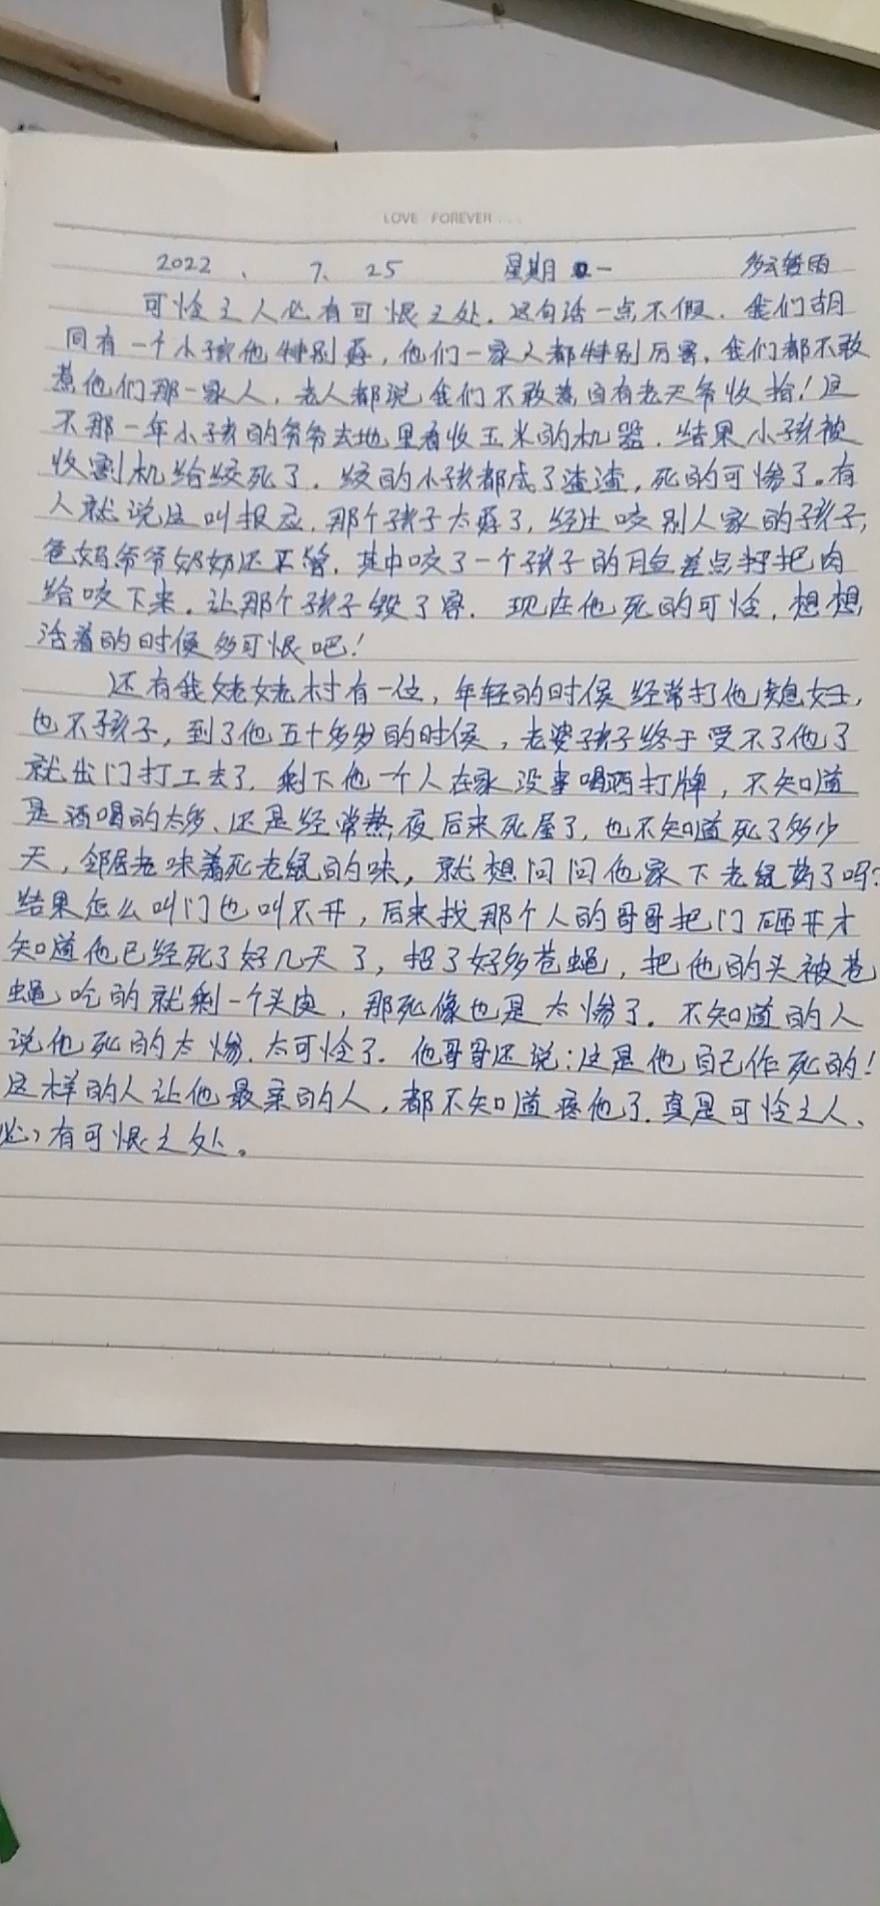 LOVE FOREVER
2022、7、25 星期一 多云转雨
可怜之人必有可恨之处。这句话一点不假。我们胡
同有一个小孩他特别孬，他们一家人都特别厉害，我们都不敢
惹他们那一家人，老人都说我们不敢惹，自有老天爷收拾！这
不那一年小孩的爷爷去地里看收玉米的机器，结果小孩被
收割机给绞死了，绞的小孩都成了渣渣，死的可惨了。有
人就说这叫报应，那个孩子太孬了，经让咬别人家的孩子，
爸妈爷爷奶奶还不管，其中咬了一个孩子的脸差点把肉
给咬下来，让那个孩子毁了容。现在他死的可怜，想想
活着的时候多可恨吧！
还有我姥姥村有一位，年轻的时候经常打他媳妇，
也不孩子，到了他五十多岁的时候，老婆孩子终于受不了他了
就出门打工去了，剩下他一个人在家没事喝酒打牌，不知道
是酒喝的太多、还是经常熬夜后来死屋了，也不知道死了多少
天，邻居老味着死老鼠的味，就想问问他家下老鼠药了吗？
结果怎么叫门也叫不开，后来找那个人的哥哥把门砸开才
知道他已经死了好几天了，招了好多苍蝇，把他的头被苍
蝇吃的就剩一个头皮，那死像也是太惨了。不知道的人
说他死的太惨，太可怜了。他哥哥还说：这是他自己作死的！
这样的人让他最亲的人，都不知道疼他了。真是可怜之人、
必有可恨之处。